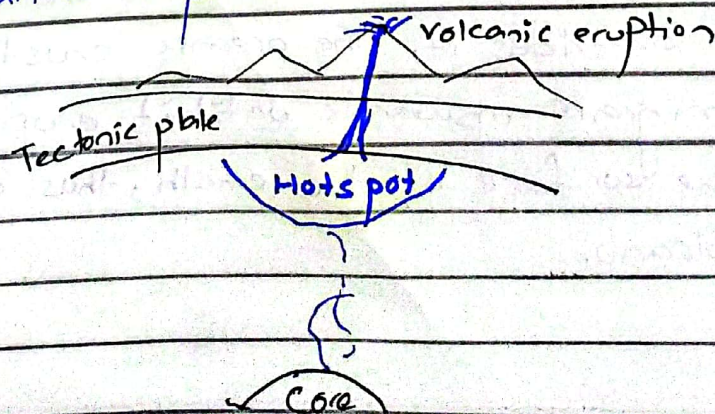 volcanic eruption
Tectonic plate
Hotspot
Core